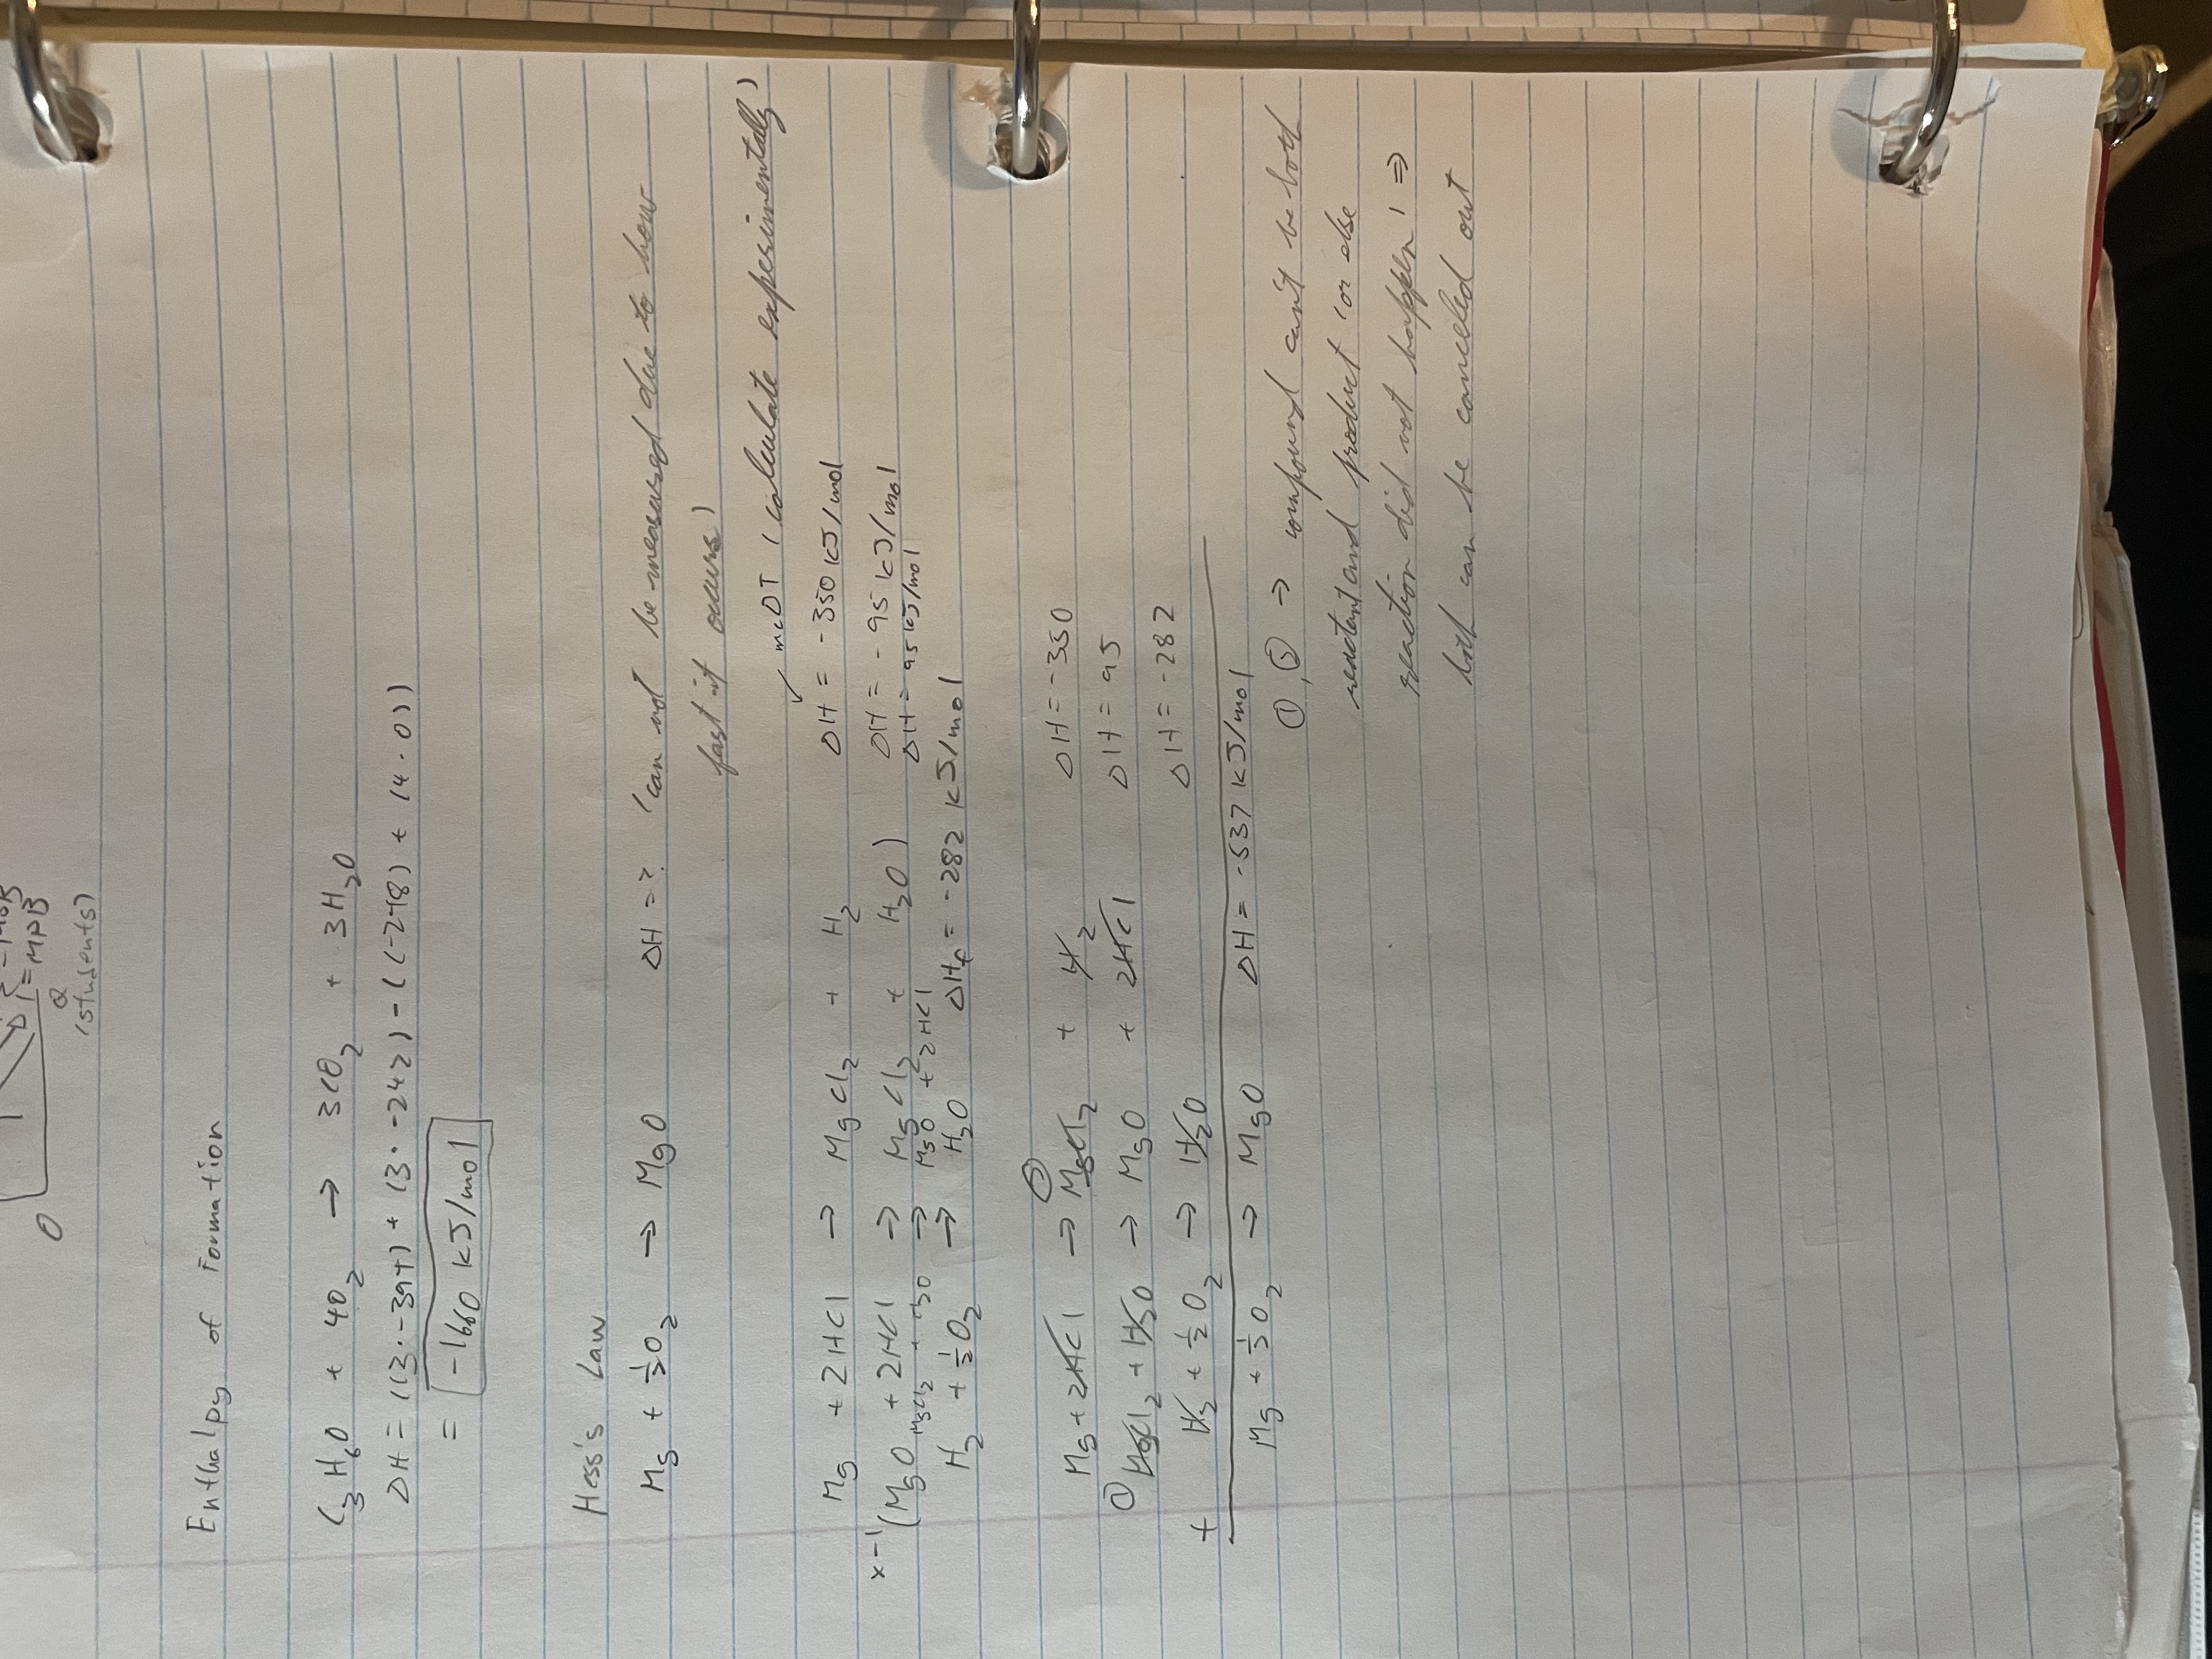 = MPB
O
Q
(students)
Enthalpy of Formation
C₃H₆O + 4O₂ → 3CO₂ + 3H₂O
ΔH = ((3·-394) + (3·-242) - ((-248) + (4·0))
= -1660 kJ/mol
Hess's Law
Mg + ½O₂ → MgO ΔH = ? (can not be measured due to how
fast it occurs)
mcΔT (calculate experimentally)
Mg + 2HCl → MgCl₂ + H₂ ΔH = -350 kJ/mol
x-1 (MgO + 2HCl → MgCl₂ + H₂O) ΔH = -95 kJ/mol
MgCl₂ + H₂O → MgO + 2HCl ΔH = 95 kJ/mol
H₂ + ½O₂ → H₂O ΔHf = -282 kJ/mol
②
Mg + 2HCl → MgCl₂ + H₂ ΔH = -350
① MgCl₂ + H₂O → MgO + 2HCl ΔH = 95
+ H₂ + ½O₂ → H₂O ΔH = -282
Mg + ½O₂ → MgO ΔH = -537 kJ/mol
①, ② → compound can't be both
reactant and product (or else
reaction did not happen) ⇒
both can be canceled out